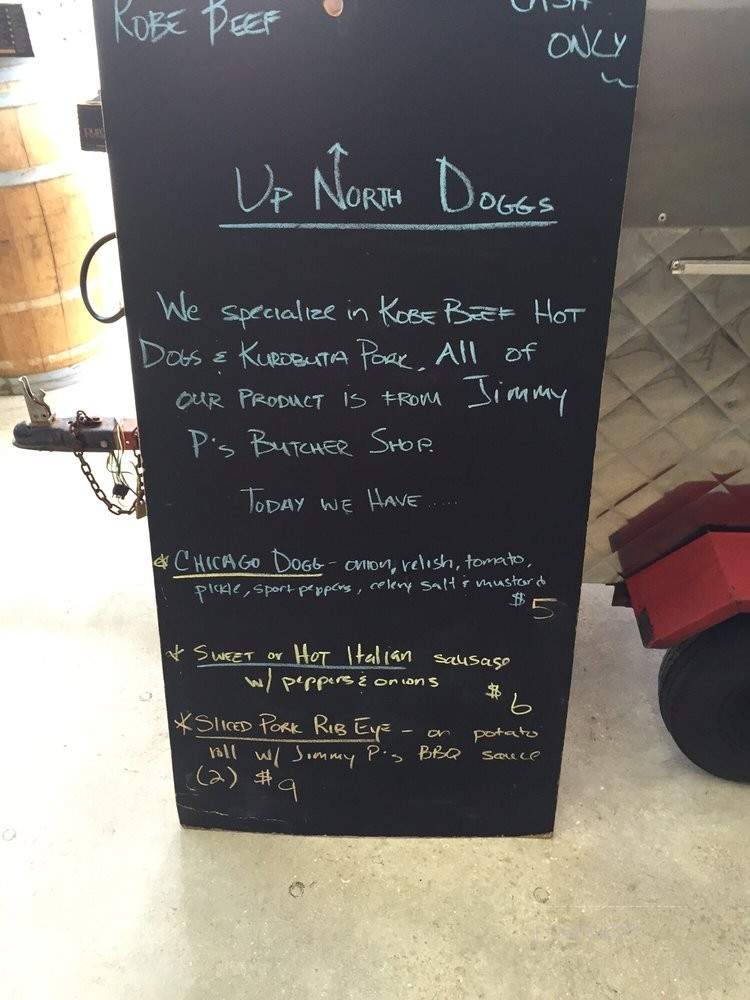 KOBE BEEF
CASH
ONLY
UP NORTH DOGGS
We specialize in KOBE BEEF HOT
DOGS & KUROBUTA PORK. All of
OUR PRODUCT IS FROM Jimmy
P's BUTCHER SHOP.
TODAY WE HAVE.....
* CHICAGO DOGG - onion, relish, tomato,
pickle, sport peppers, celery salt & mustard
$5
* SWEET or HOT Italian sausage
w/ peppers & onions
$6
* SLICED PORK RIB EYE - on potato
roll w/ Jimmy P's BBQ sauce
(2) $9